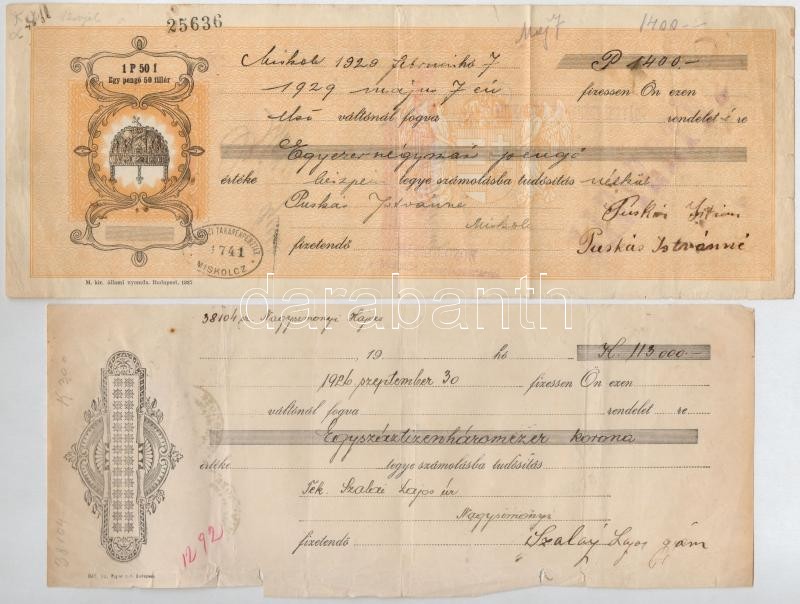 25636
Máj 7
1400—
1 P 50 f
Egy pengő 50 fillér
Miskolc 1929 február hó 7
P 1400—
1929 május 7 én
fizessen Ön ezen
első váltónál fogva
rendelet-é re
Egyezernégyszáz pengő
értéke készpén tegye számolásba tudósítás nélkül
Puskás Istvánné
Miskolc
Puskás István
fizetendő
Puskás Istvánné
TAKARÉKPÉNZTÁR
1741
MISKOLCZ
M. kir. állami nyomda. Budapest, 1927
darabanth
38104 Nagysimonyi
19 hó
K. 113 000.—
K 300
1926 szeptember 30
fizessen Ön ezen
váltónál fogva
rendelet re
Egyszáztizenháromezer korona
értéke tegye számolásba tudósítás
Tek. Szalai Lajos úr
Nagysimonyi
fizetendő
Szalay Lajos
38104
1292